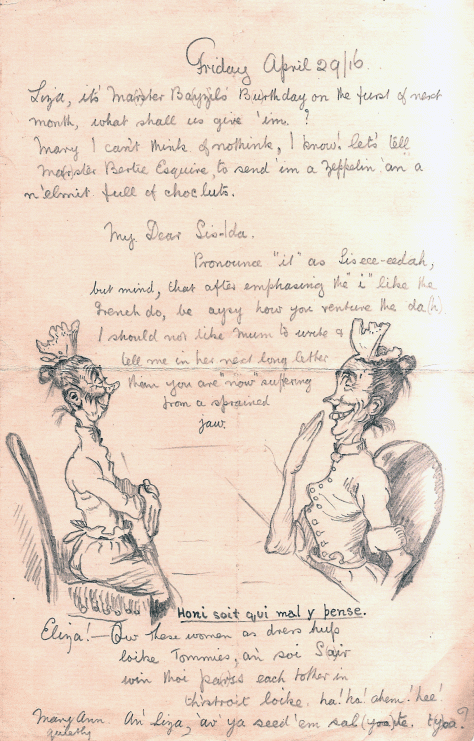 Friday April 29/16.
Liza, it's Marster Bayzils Burthday on the furst of next
month, what shall us give 'im. ?
Mary I can't think of nothink, I know! let's tell
Marster Bertie Esquire, to send 'im a Zeppelin 'an a
n'elmit full of chocluts.
My Dear Sis-Ida.
Pronounce "it" as Siseee-eedah,
but mind, that after emphasing the "i" like the
French do, be aysy how you venture the da(h)
I should not like Mum to write &
tell me in her next long letter
than you are "now" suffering
from a sprained
jaw.
Honi soit qui mal y pense.
Eliza! — Ow these women as drers hup
loike Tommies, an' soi Sair
win thoi parss each tother in
thirstroit loike. ha! ha! ahem! hee!
Mary Ann. An' Liza, av' ya seed 'em sal